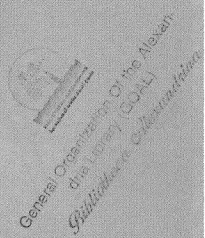 General Organization Of the Alexan-
dria Library (GOAL)
Bibliotheca Alexandrina